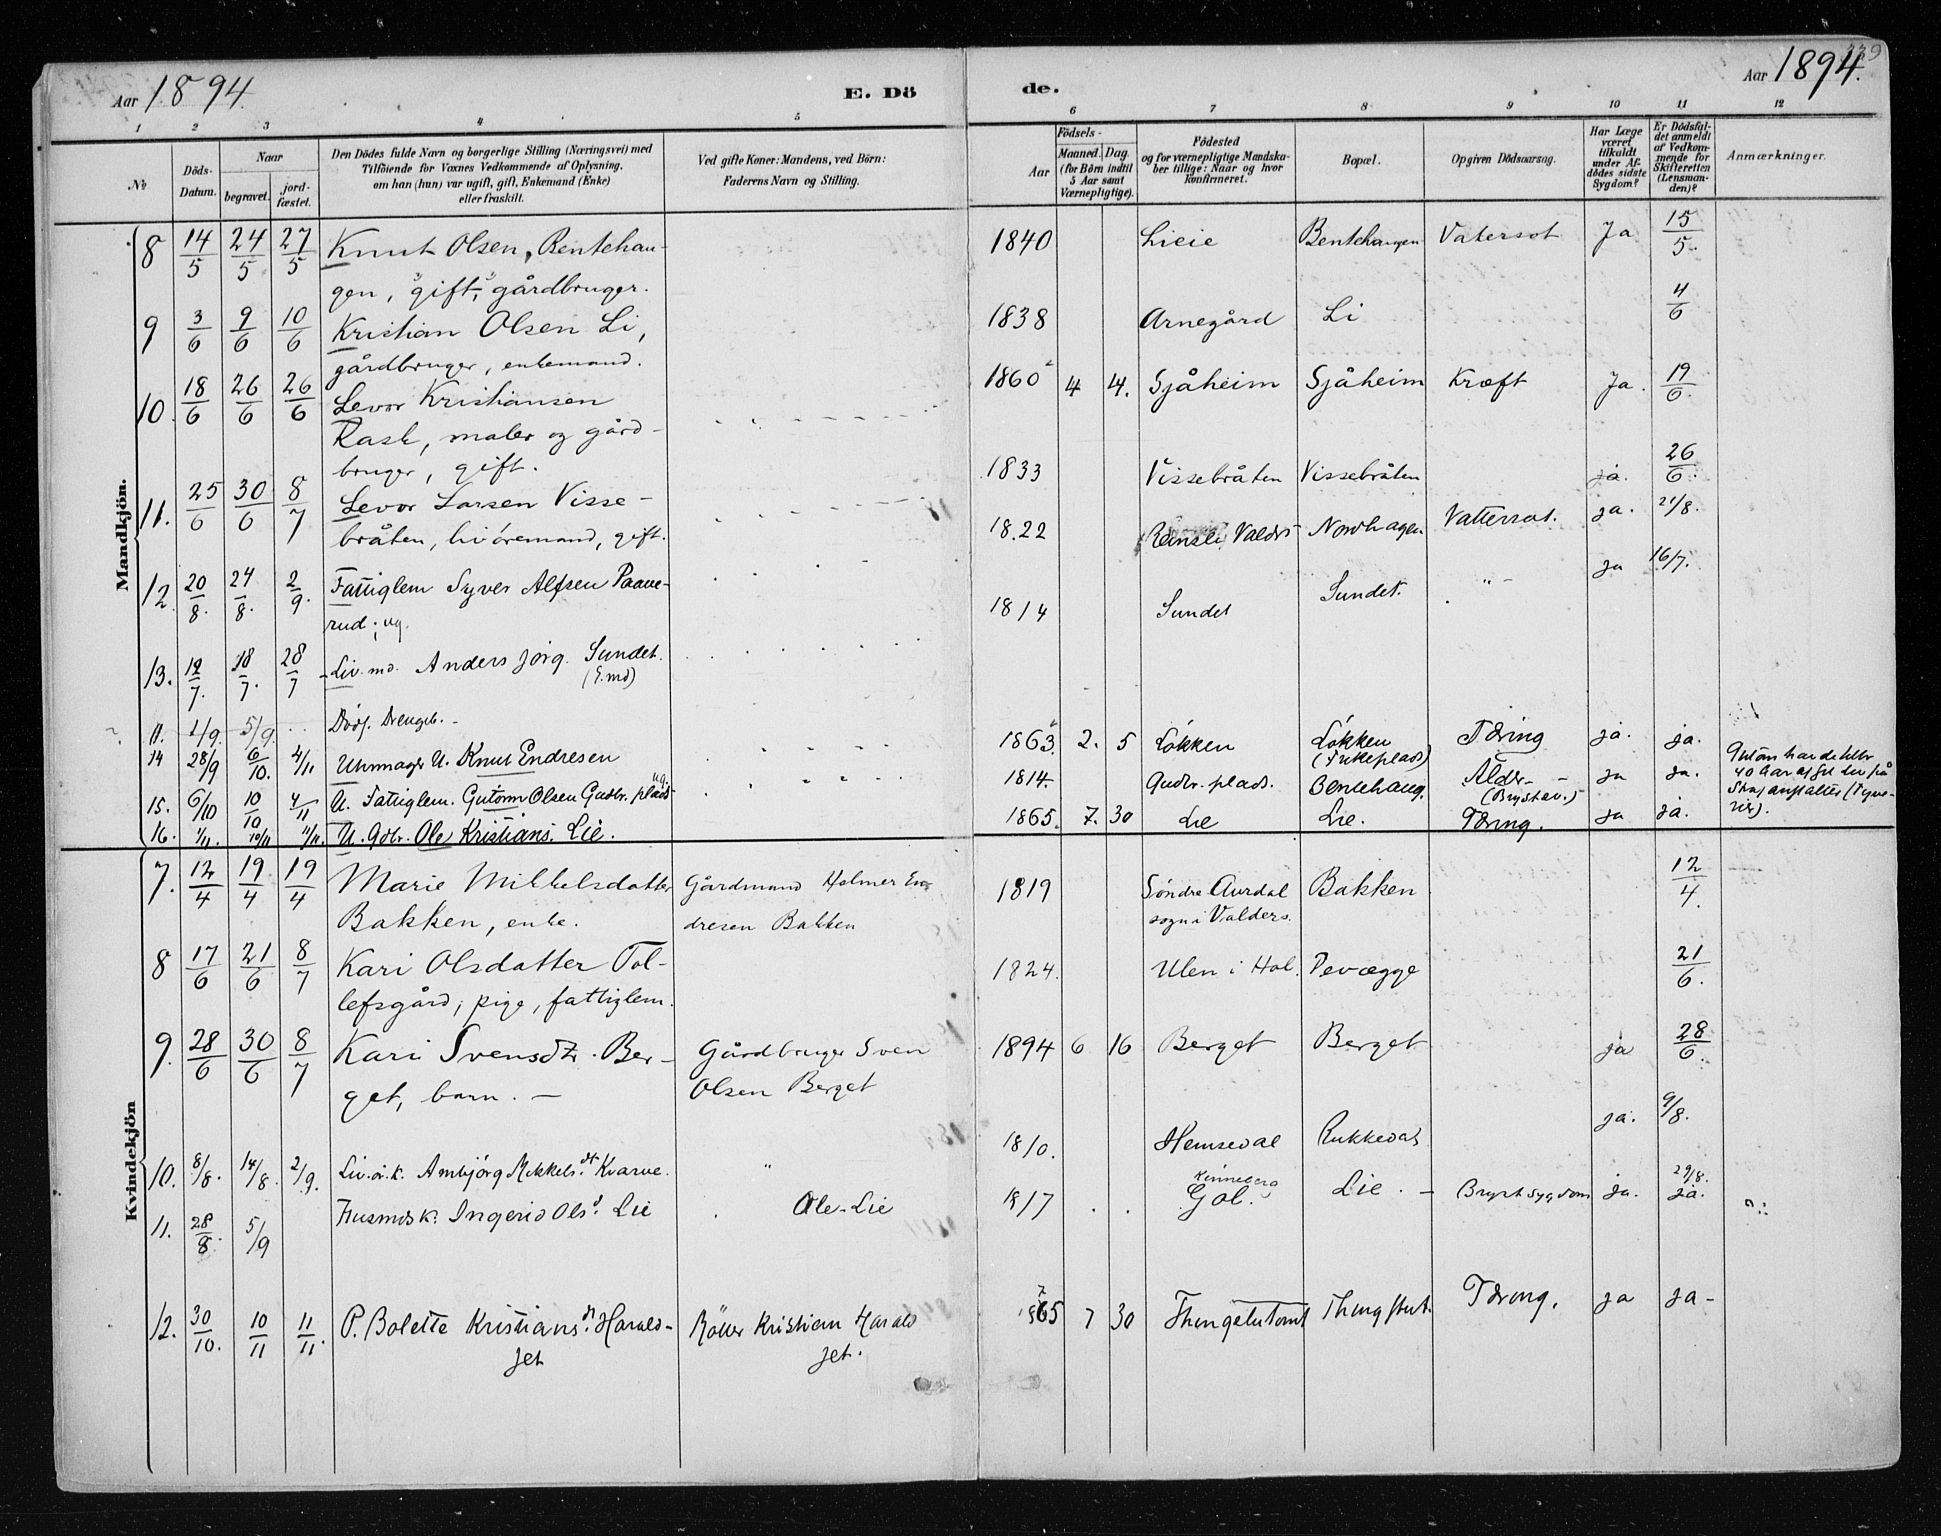 Aar 1894. E. Dö
de. Aar 1894. 339
1 2 3 4 5
6 7 8 9 10 11 12
№ Döds-Datum. Naar begravet. jord-fæstet.
Den Dödes fulde Navn og borgerlige Stilling (Næringsvei) med
Tilföiende for Voxnes Vedkommende af Oplysning,
om han (hun) var ugift, gift, Enkemand (Enke)
eller fraskilt.
Ved gifte Koner: Mandens, ved Börn:
Faderens Navn og Stilling.
Födsels-
Aar Maaned. Dag.
(for Börn indtil
5 Aar samt
Værnepligtige).
Födested
og for værnepligtige Mandska-
ber tillige: Naar og hvor
konfirmeret.
Bopæl.
Opgiven Dödsaarsag.
Har Læge
været
tilkaldt
under Af-
dödes sidste
Sygdom?
Er Dödsfal-
det anmeldt
af Vedkom-
mende for
Skifteretten
(Lensman-
den)?
Anmærkninger.
Mandkjön.
8 14/5 24/5 27/5 Knut Olsen, Bentehau-
gen, gift, gårdbruger.
1840 Lieie Bentehaugen Vatersot Ja 15/5.
9 3/6 9/6 10/6 Kristian Olsen Li,
gårdbruger, enkemand.
1838 Arnegård Li 4/6
10. 18/6 26/6 26/6 Levor Kristiansen
Rask, maler og gård-
bruger, gift.
1860 4 4. Sjåheim Sjåheim Kræft Ja. 19/6.
11. 25/6 30/6 8/7 Levor Larsen Visse-
bråten, livöremand, gift.
1833 Vissebråten Vissebråten ja. 26/6.
12. 20/8. 24/8. 2/9. Fattiglem Syver Alfsen Paave-
rud; ug.
1822 Valdrs Nordhagen Vattersot. ja. 21/8.
13. 12/7. 18/7. 28/7 Liv. md. Anders Jörg. Sundet.
(E.md)
1814 Sundet Sundet. " ja 16/7.
11. 1/9. 5/9. Dödf. Drengeb.
14 28/9 6/10. 4/11 Uhrmager U. Knut Endresen
1863. 2. 5 Lökken Lökken Tæring ja. ja.
15. 6/10 10/10 4/11 U. Fattiglem. Gutorm Olsen Gudbr. plads ug.
1814. Gudbr. plads. Bentehaug. Alder- ja ja.
(Brystav.)
Gutorm har deltelr
40 Aar afsit Liv på
Strafanstalter (Tyve-
rier).
16. 1/11. 10/11 11/11. U. Gdbr. Ole Kristians. Lie.
1865. 7. 30 Lie Lie. Tæring. ja ja.
Kvindekjön
7. 12/4 19/4 19/4 Marie Mikkelsdatter Gårdmand Holmer En-
Bakken, enke. dresen Bakken
1819 Söndre Aurdal Bakken 12/4.
sogn i Valders.
8 17/6 21/6 8/7 Kari Olsdatter Tol-
lefsgård, pige, fattiglem.
1824. Ulen i Hol. Pevægge 21/6.
9. 28/6 30/6 8/7 Kari Svensdtr. Ber- Gårdbruger Sven
get, barn. Olsen Berget
1894 6 16 Berget Berget ja 28/6.
10. 8/8. 14/8. 2/9. Liv.ör.k. Ambjörg Mikkels.dt Kvarve. "
1810. Hemsedal Rukkedal ja. 9/8.
11. 28/8. 5/9 Husmds k. Ingerid Ols.d Lie Ole Lie
1817 Gol. Lie. Brystsygdom ja. 29/8. ja.
12. 30/10. 10/11 11/11. P. Bolette Kristians.dt. Harald-
set
Röller Kristian Harald
set.
1865 7 30 Thingelstomt Thingstut. Tæring. ja ja